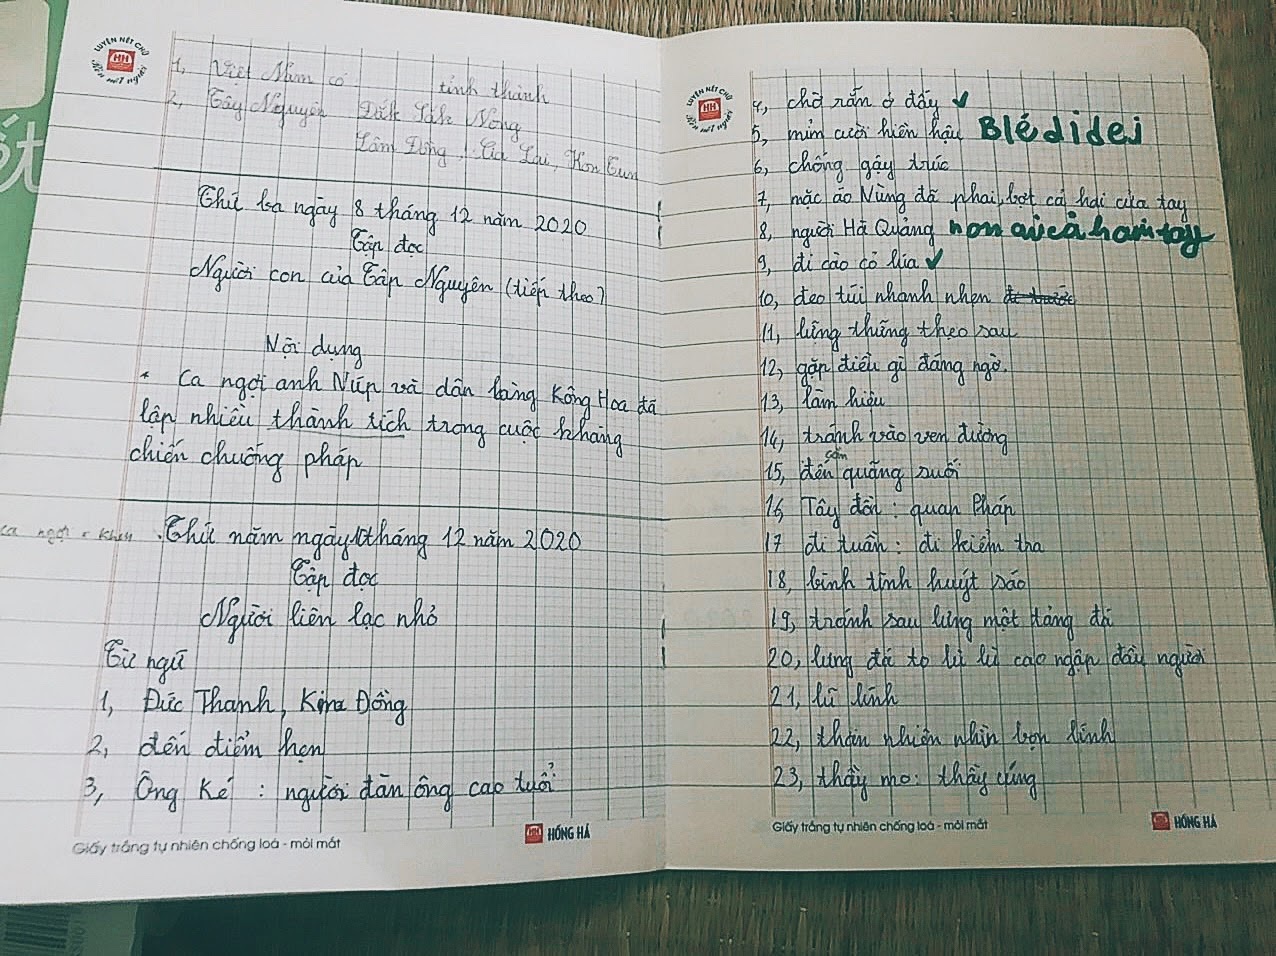 LUYỆN NẾT CHỮ
HH
Rèn nết người
1, Việt Nam có tỉnh thành
2, Tây Nguyên Đắk Lắk Nông
Lâm Đồng, Gia Lai, Kon Tum
Thứ ba ngày 8 tháng 12 năm 2020
Tập đọc
Người con của Tây Nguyên (tiếp theo)
Nội dung
* Ca ngợi anh Núp và dân làng Kông Hoa đã
lập nhiều thành tích trong cuộc kháng
chiến chuống pháp
ca ngợi = khen
Thứ năm ngày 10 tháng 12 năm 2020
Tập đọc
Người liên lạc nhỏ
Từ ngữ
1, Đức Thanh, Kim Đồng
2, đến điểm hẹn
3, Ông Ké : người đàn ông cao tuổi
Giấy trắng tự nhiên chống loá - mỏi mắt
HH HỒNG HÀ
LUYỆN NẾT CHỮ
HH
Rèn nết người
4, chờ rắn ở đấy ✓
5, mỉm cười hiền hậu Blédidej
6, chống gậy trúc
7, mặc áo Nùng đã phai, bợt cả hai cửa tay
8, người Hà Quảng
9, đi cào cỏ lúa ✓
10, đeo túi nhanh nhẹn
11, lững thững theo sau
12, gặp điều gì đáng ngờ.
13, làm hiệu
14, tránh vào ven đường
15, đến gần quãng suối
16, Tây đồn : quan Pháp
17 đi tuần : đi kiểm tra
18, bình tĩnh huýt sáo
19, tránh sau lưng một tảng đá
20, lưng đá to lù lù cao ngập đầu người
21, lũ lính
22, thản nhiên nhìn bọn lính
23, thầy mo : thầy cúng
Giấy trắng tự nhiên chống loá - mỏi mắt
HH HỒNG HÀ